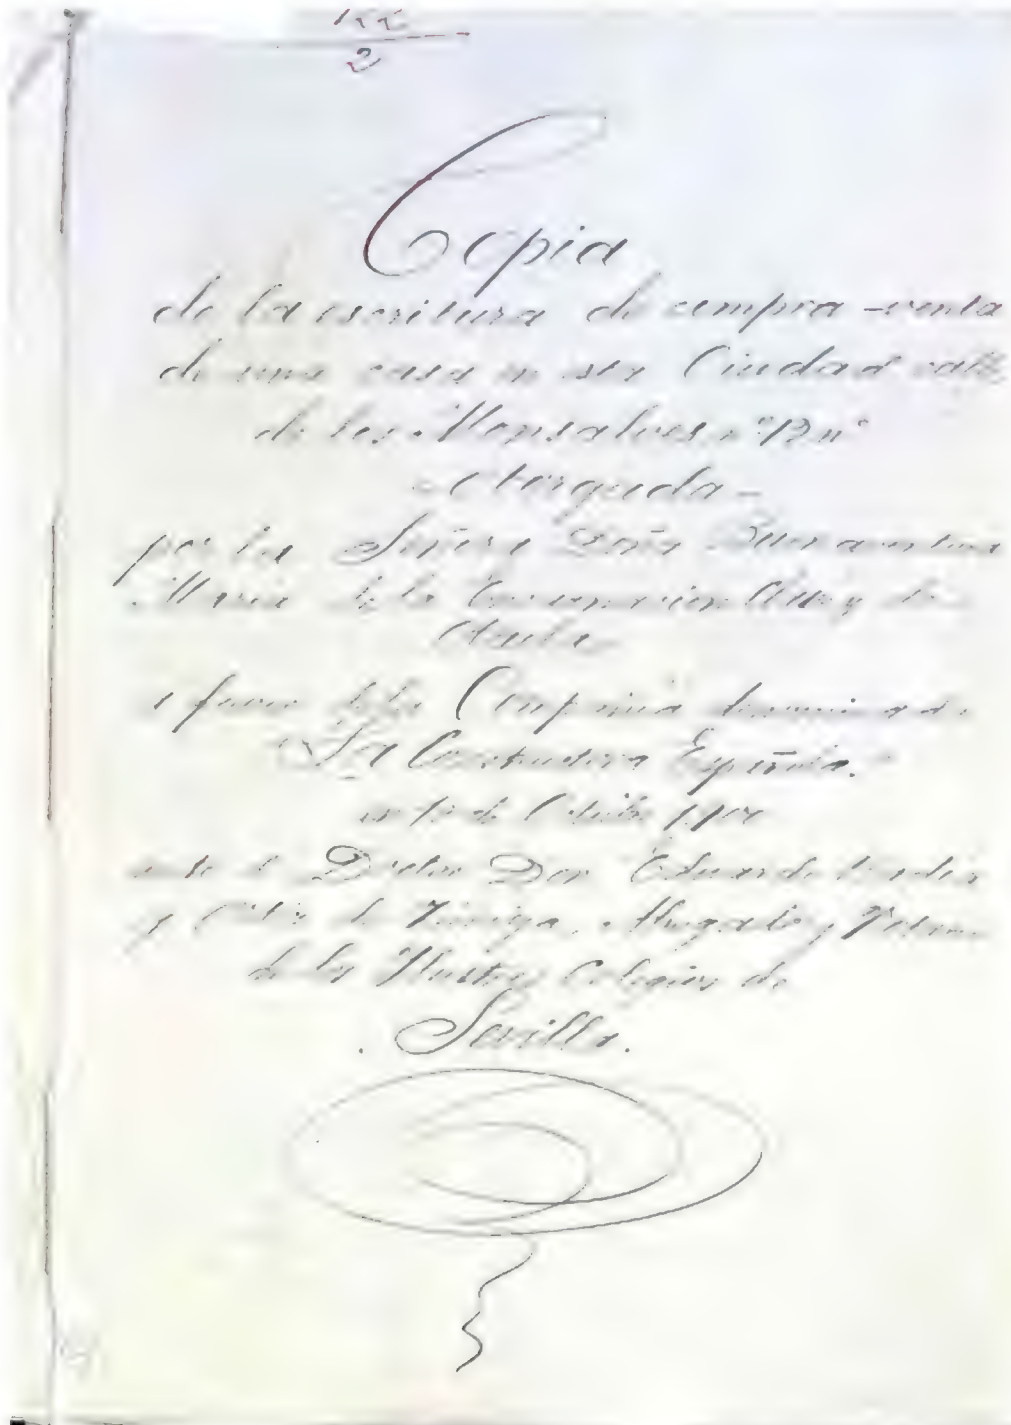 2
Copia
de la escritura de compra-venta
de una casa en esta Ciudad calle
de los Monsalves nº 13 nº
- Otorgada -
por la Señora Doña Buenaventura
María de la Encarnacion y de
a favor de la Compañia denominada
"La Constructora Española."
en de Octubre
ante el Doctor Don Eduardo
y de Zúñiga, Abogado y Notario
de los Ilustres Colegios de
Sevilla.